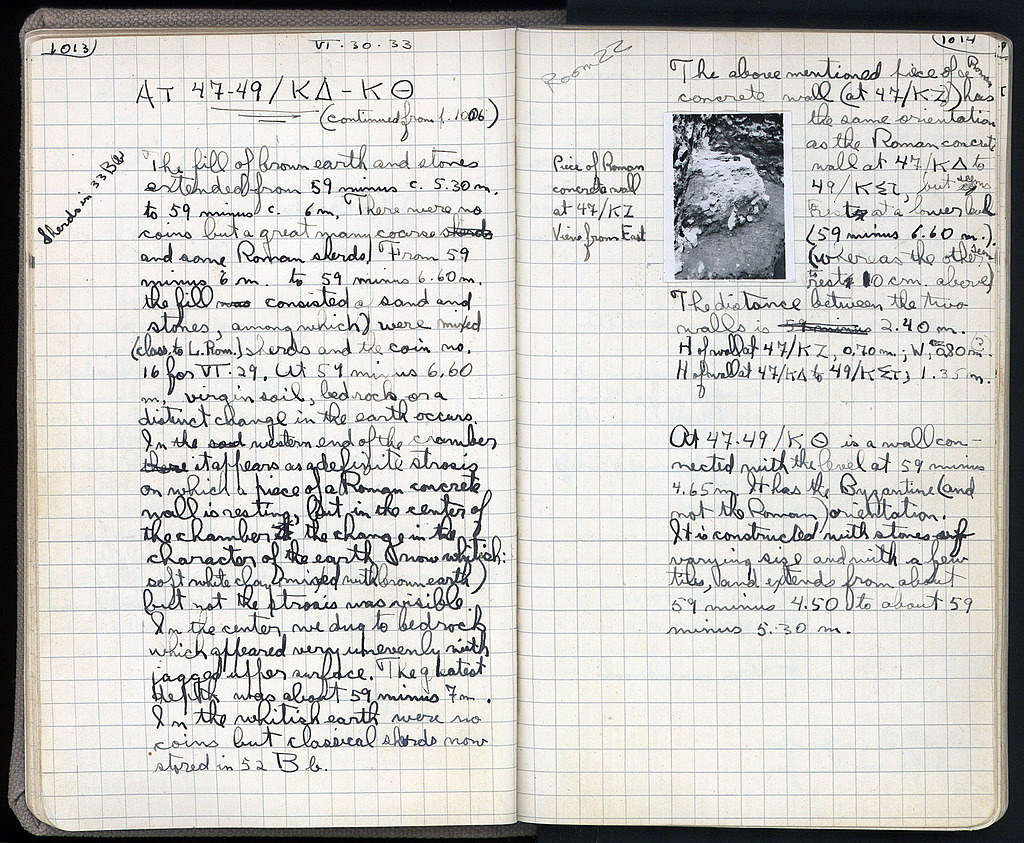 1013
VI.30.33
AT 47-49/ΚΔ-ΚΘ
(continued from p. 1006)
Sherds in 33 Bb
The fill of brown earth and stones
extended from 59 minus c. 5.30 m.
to 59 minus c. 6m. There were no
coins but a great many coarse sherds
and some Roman sherds. From 59
minus 6 m. to 59 minus 6.60 m.
the fill was consisted a sand and
stones, among which were mixed
(class. to L. Rom.) sherds and the coin no.
16 for VI.29. At 59 minus 6.60
m, virgin soil, bedrock, or a
distinct change in the earth occurs.
In the said western end of the chamber
there it appears as a definite strosis
on which a piece of a Roman concrete
wall is resting, but, in the center of
the chamber the change in the
character of the earth (now whitish:
soft white clay mixed with brown earth)
but not the strosis was visible.
In the center we dug to bedrock
which appeared very unevenly with
jagged upper surface. The greatest
depth was about 59 minus 7m.
In the whitish earth were no
coins but classical sherds now
stored in 52 Bb.
1014
Room 22
The above mentioned piece of a Roman
concrete wall (at 47/ΚΖ) has
the same orientation
as the Roman concrete
wall at 47/ΚΔ to
49/ΚΣΤ, but seems
to rest at a lower level
(59 minus 6.60 m.).
(whereas the other seems
to rest 10 cm. above)
Piece of Roman
concrete wall
at 47/ΚΖ
View from East
The distance between the two
walls is 59 minus 2.40 m.
H of wall at 47/ΚΖ, 0.70m.; W, 0.80 m.
H of wall at 47/ΚΔ to 49/ΚΣΤ; 1.35 m.
At 47-49/ΚΘ is a wall con-
nected with the level at 59 minus
4.65 m. It has the Byzantine (and
not the Roman) orientation.
It is constructed with stones of
varying size and with a few
tiles, and extends from about
59 minus 4.50 to about 59
minus 5.30 m.